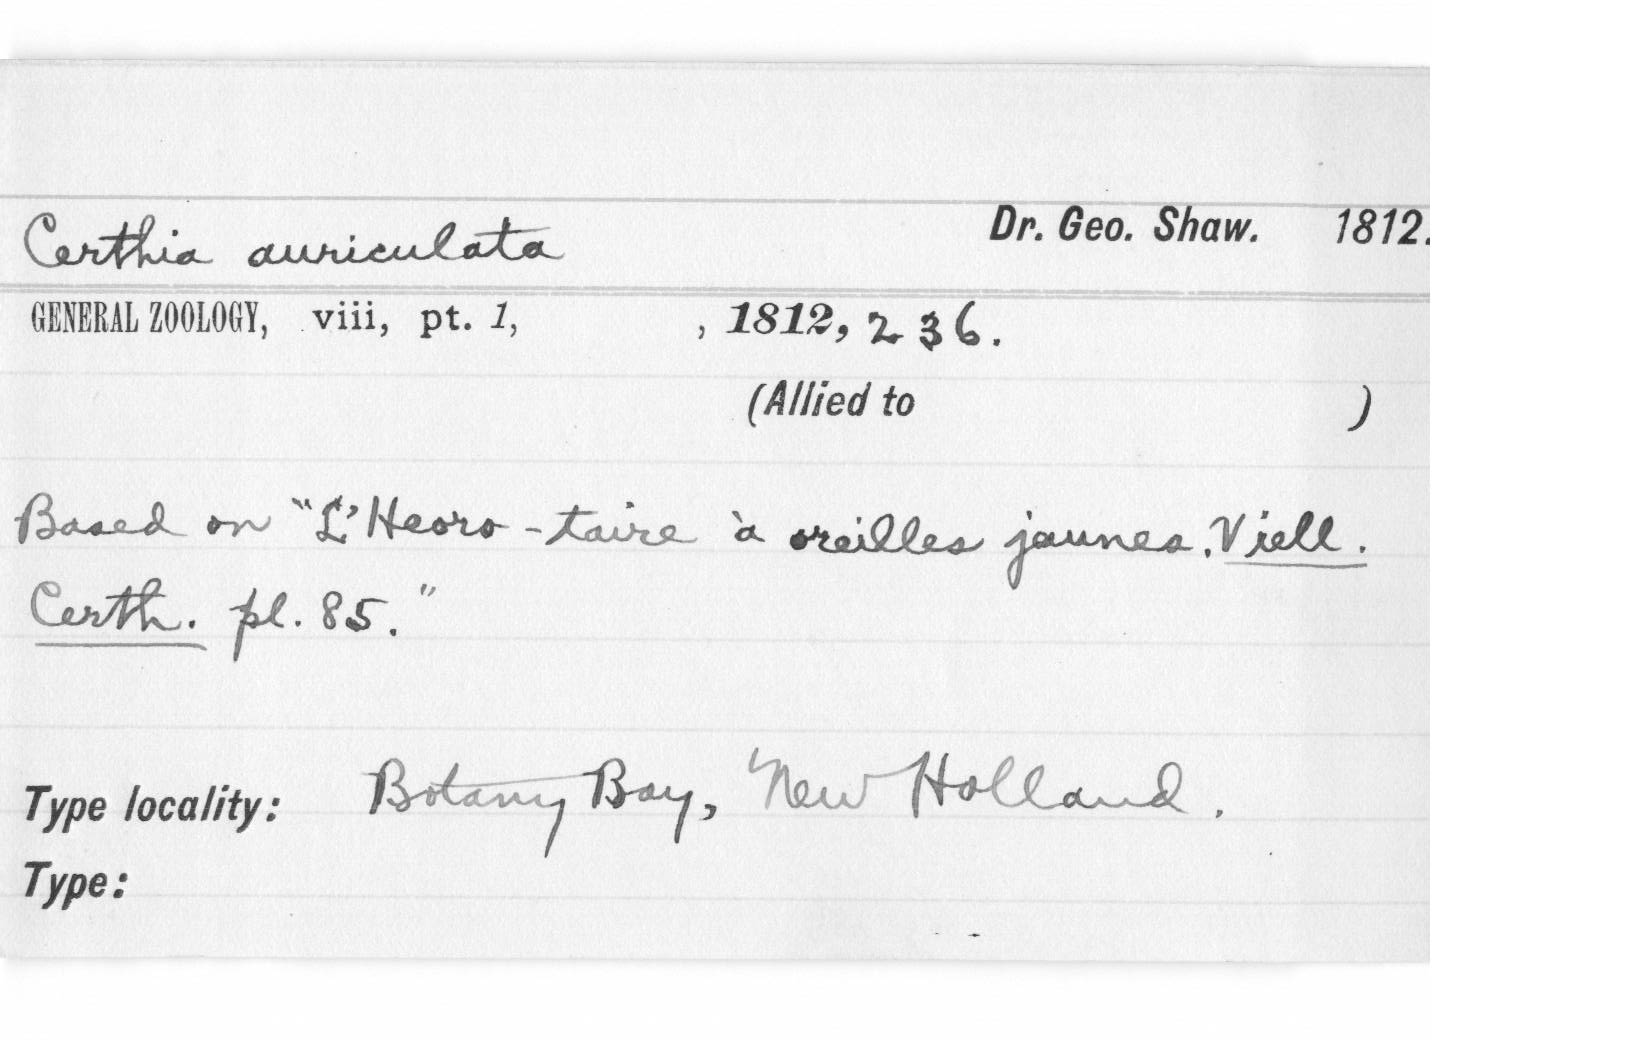 Certhia auriculata Dr. Geo. Shaw. 1812.
GENERAL ZOOLOGY, viii, pt. 1, , 1812, 236.
(Allied to )
Based on "L'Heoro-taire à oreilles jaunes. Viell.
Certh. pl. 85."
Type locality: Botany Bay, New Holland.
Type: